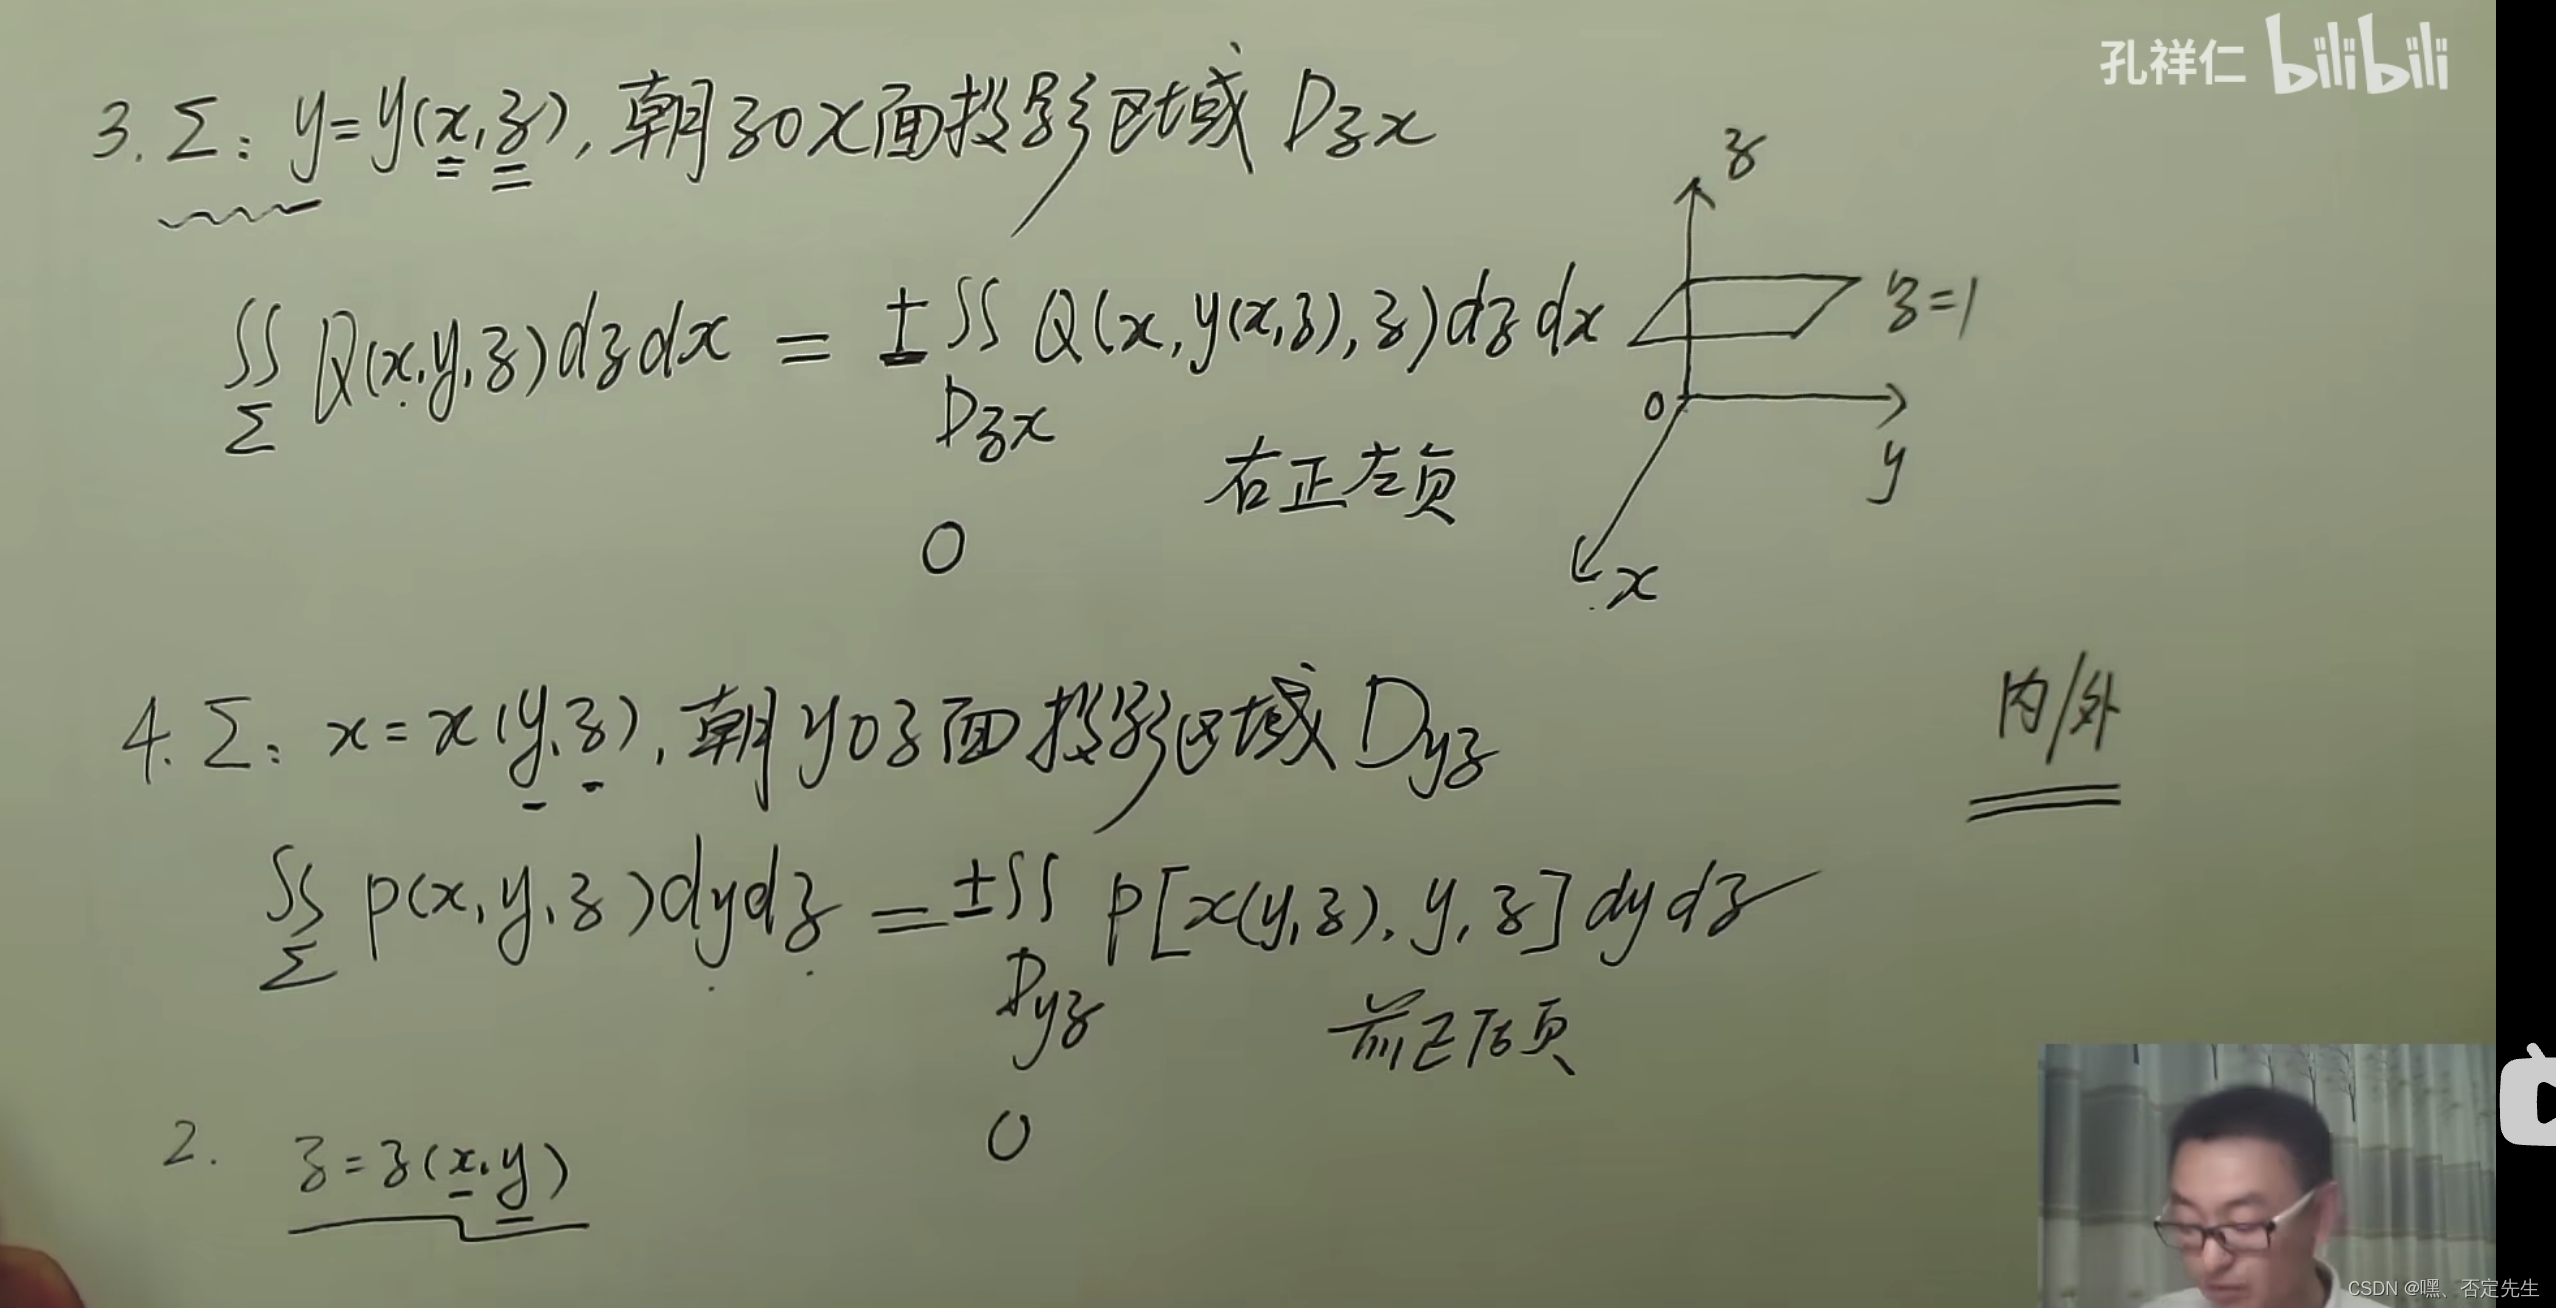 孔祥仁 bilibili
3. Σ: y=y(x,z), 朝zox面投影区域 Dzx
z
∬Σ Q(x,y,z)dzdx = ±∬Dzx Q(x,y(x,z),z)dzdx
z=1
0
y
右正左负
0
x
内/外
4. Σ: x=x(y,z), 朝yoz面投影区域 Dyz
∬Σ P(x,y,z)dydz = ±∬Dyz P[x(y,z),y,z]dydz
前正后负
0
2. z=z(x,y)
CSDN @嘿、否定先生